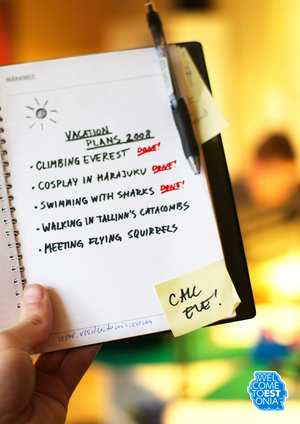 VACATION
PLANS 2008
• CLIMBING EVEREST DONE!
• COSPLAY IN HARAJUKU DONE!
• SWIMMING WITH SHARKS DONE!
• WALKING IN TALLINN'S CATACOMBS
• MEETING FLYING SQUIRRELS
CALL
EVE!
WEL
COME
TOEST
ONIA